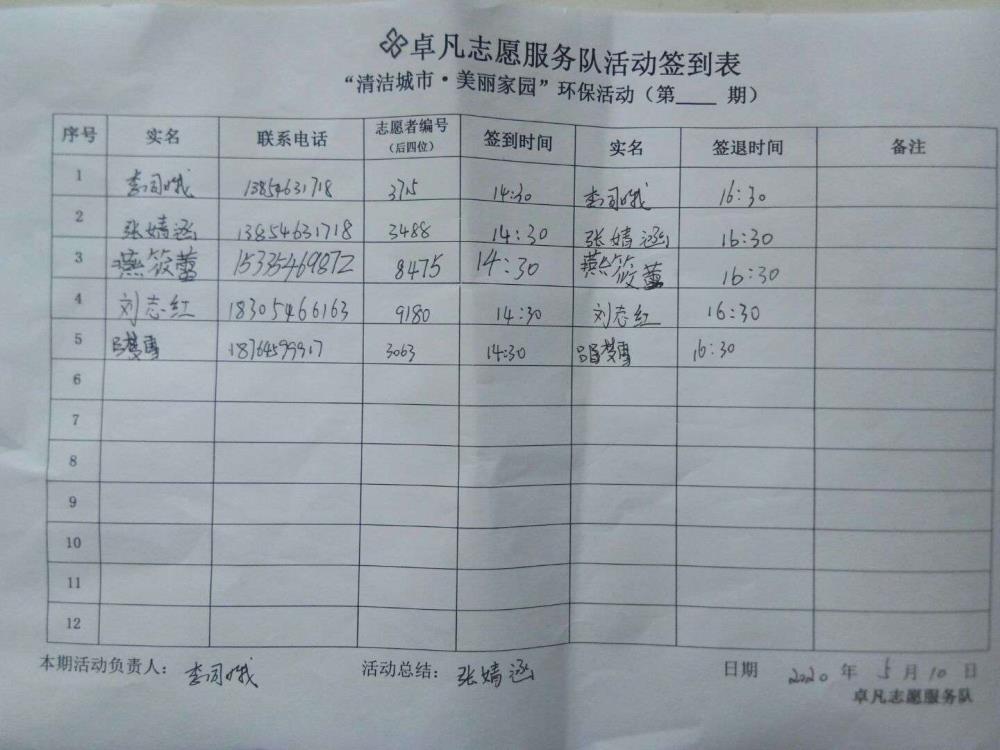 卓凡志愿服务队活动签到表
“清洁城市·美丽家园”环保活动（第____ 期）
序号 实名 联系电话 志愿者编号（后四位） 签到时间 实名 签退时间 备注
1 李词哦 13854631718 3715 14:30 李词哦 16:30
2 张婧涵 13854631718 3488 14:30 张婧涵 16:30
3 燕筱蕾 15335469872 8475 14:30 燕筱蕾 16:30
4 刘志红 18305466163 9180 14:30 刘志红 16:30
5 3063 14:30 16:30
6
7
8
9
10
11
12
本期活动负责人：李词哦 活动总结：张婧涵 日期 2020 年 5 月 10 日
卓凡志愿服务队